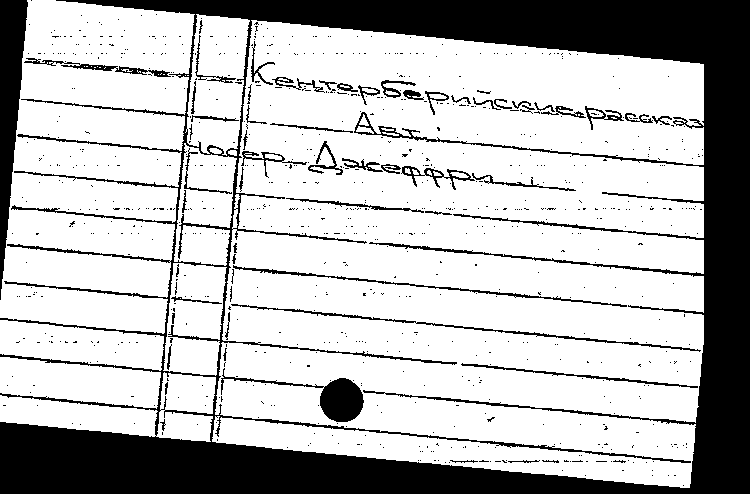 Кентерберийские рассказ
Авт.:
Чосер, Джеффри